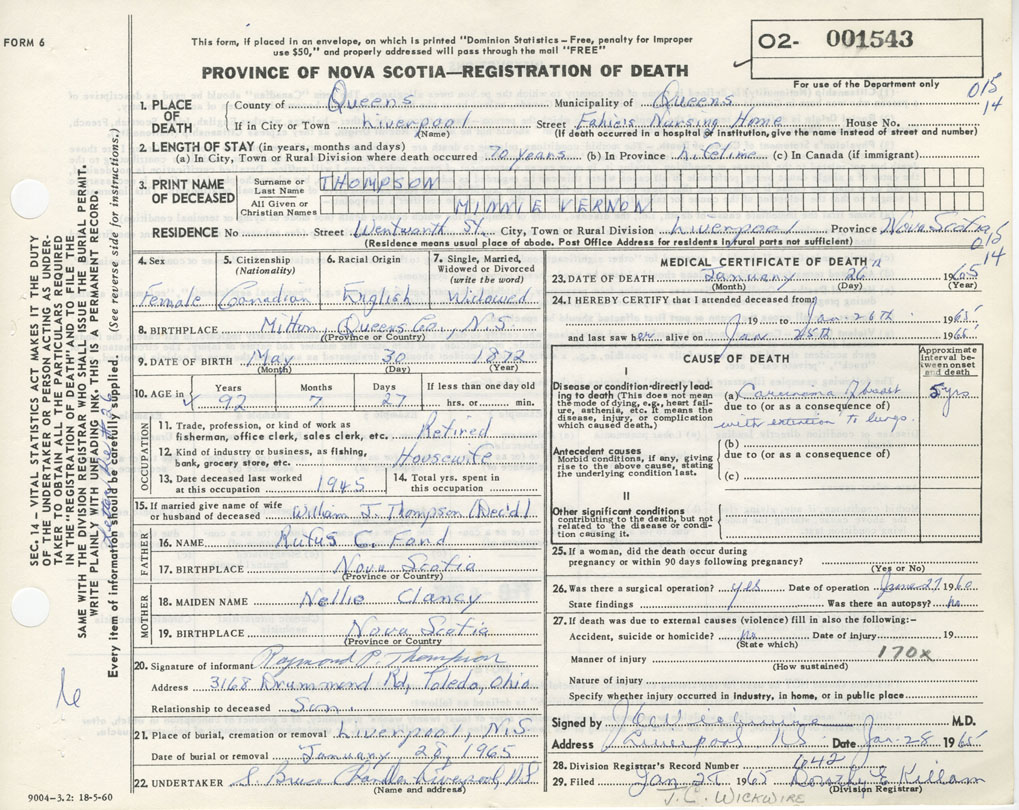 FORM 6
This form, if placed in an envelope, on which is printed "Dominion Statistics—Free, penalty for improper
use $50," and properly addressed will pass through the mail "FREE"
02- 001543
For use of the Department only
PROVINCE OF NOVA SCOTIA—REGISTRATION OF DEATH
015
14
1. PLACE OF DEATH
County of Queens Municipality of Queens
If in City or Town Liverpool (Name) Street Fahie's Nursing Home House No.
(If death occurred in a hospital or institution, give the name instead of street and number)
2. LENGTH OF STAY (in years, months and days)
(a) In City, Town or Rural Division where death occurred 70 years (b) In Province (c) In Canada (if immigrant)
3. PRINT NAME OF DECEASED
Surname or Last Name THOMPSON
All Given or Christian Names MINNIE VERNON
RESIDENCE No Street Wentworth St. City, Town or Rural Division Liverpool Province Nova Scotia
(Residence means usual place of abode. Post Office Address for residents in rural parts not sufficient)
015
14
4. Sex Female
5. Citizenship (Nationality) Canadian
6. Racial Origin English
7. Single, Married, Widowed or Divorced (write the word) Widowed
8. BIRTHPLACE Milton, Queens Co., N.S.
(Province or Country)
9. DATE OF BIRTH May 30 1872
(Month) (Day) (Year)
10. AGE in Years 92 Months 7 Days 27 If less than one day old hrs. or min.
OCCUPATION
11. Trade, profession, or kind of work as fisherman, office clerk, sales clerk, etc. Retired
12. Kind of industry or business, as fishing, bank, grocery store, etc. Housewife
13. Date deceased last worked at this occupation 1945
14. Total yrs. spent in this occupation
15. If married give name of wife or husband of deceased William J. Thompson (Dec'd)
FATHER
16. NAME Rufus C. Ford
17. BIRTHPLACE Nova Scotia
(Province or Country)
MOTHER
18. MAIDEN NAME Nellie Clancy
19. BIRTHPLACE Nova Scotia
(Province or Country)
20. Signature of informant Raymond P. Thompson
Address 3168 Drummond Rd, Toledo, Ohio
Relationship to deceased Son
21. Place of burial, cremation or removal Liverpool, N.S.
Date of burial or removal January 28, 1965
22. UNDERTAKER S. Bruce Chandler Liverpool, N.S.
(Name and address)
9004—3.2: 18-5-60
MEDICAL CERTIFICATE OF DEATH
23. DATE OF DEATH January 26 1965
(Month) (Day) (Year)
24. I HEREBY CERTIFY that I attended deceased from
19 to Jan 26th 1965
and last saw her alive on Jan 25th 1965
CAUSE OF DEATH
Approximate interval between onset and death
I
Disease or condition directly leading to death (This does not mean the mode of dying, e.g., heart failure, asthenia, etc. It means the disease, injury, or complication which caused death.)
(a) Carcinoma of breast 5 yrs
due to (or as a consequence of)
with extention to lungs.
Antecedent causes
Morbid conditions, if any, giving rise to the above cause, stating the underlying condition last.
(b)
due to (or as a consequence of)
(c)
II
Other significant conditions
contributing to the death, but not related to the disease or condition causing it.
25. If a woman, did the death occur during pregnancy or within 90 days following pregnancy?
(Yes or No)
26. Was there a surgical operation? yes Date of operation June 27 1960
State findings Was there an autopsy? No
27. If death was due to external causes (violence) fill in also the following:—
Accident, suicide or homicide? No Date of injury 19
(State which)
170x
Manner of injury
(How sustained)
Nature of injury
Specify whether injury occurred in industry, in home, or in public place
Signed by J C Wickwire M.D.
Address Liverpool N S Date Jan-28 1965
28. Division Registrar's Record Number 642
29. Filed Jan 27 1965 Dorothy E Killam
(Division Registrar)
J.C. WICKWIRE
SEC. 14—VITAL STATISTICS ACT MAKES IT THE DUTY
OF THE UNDERTAKER OR PERSON ACTING AS UNDER-
TAKER TO OBTAIN ALL THE PARTICULARS REQUIRED
IN THE "REGISTRATION OF DEATH" AND TO FILE THE
SAME WITH THE DIVISION REGISTRAR WHO SHALL ISSUE THE BURIAL PERMIT.
WRITE PLAINLY WITH UNFADING INK—THIS IS A PERMANENT RECORD.
Every item of information should be carefully supplied. (See reverse side for instructions.)